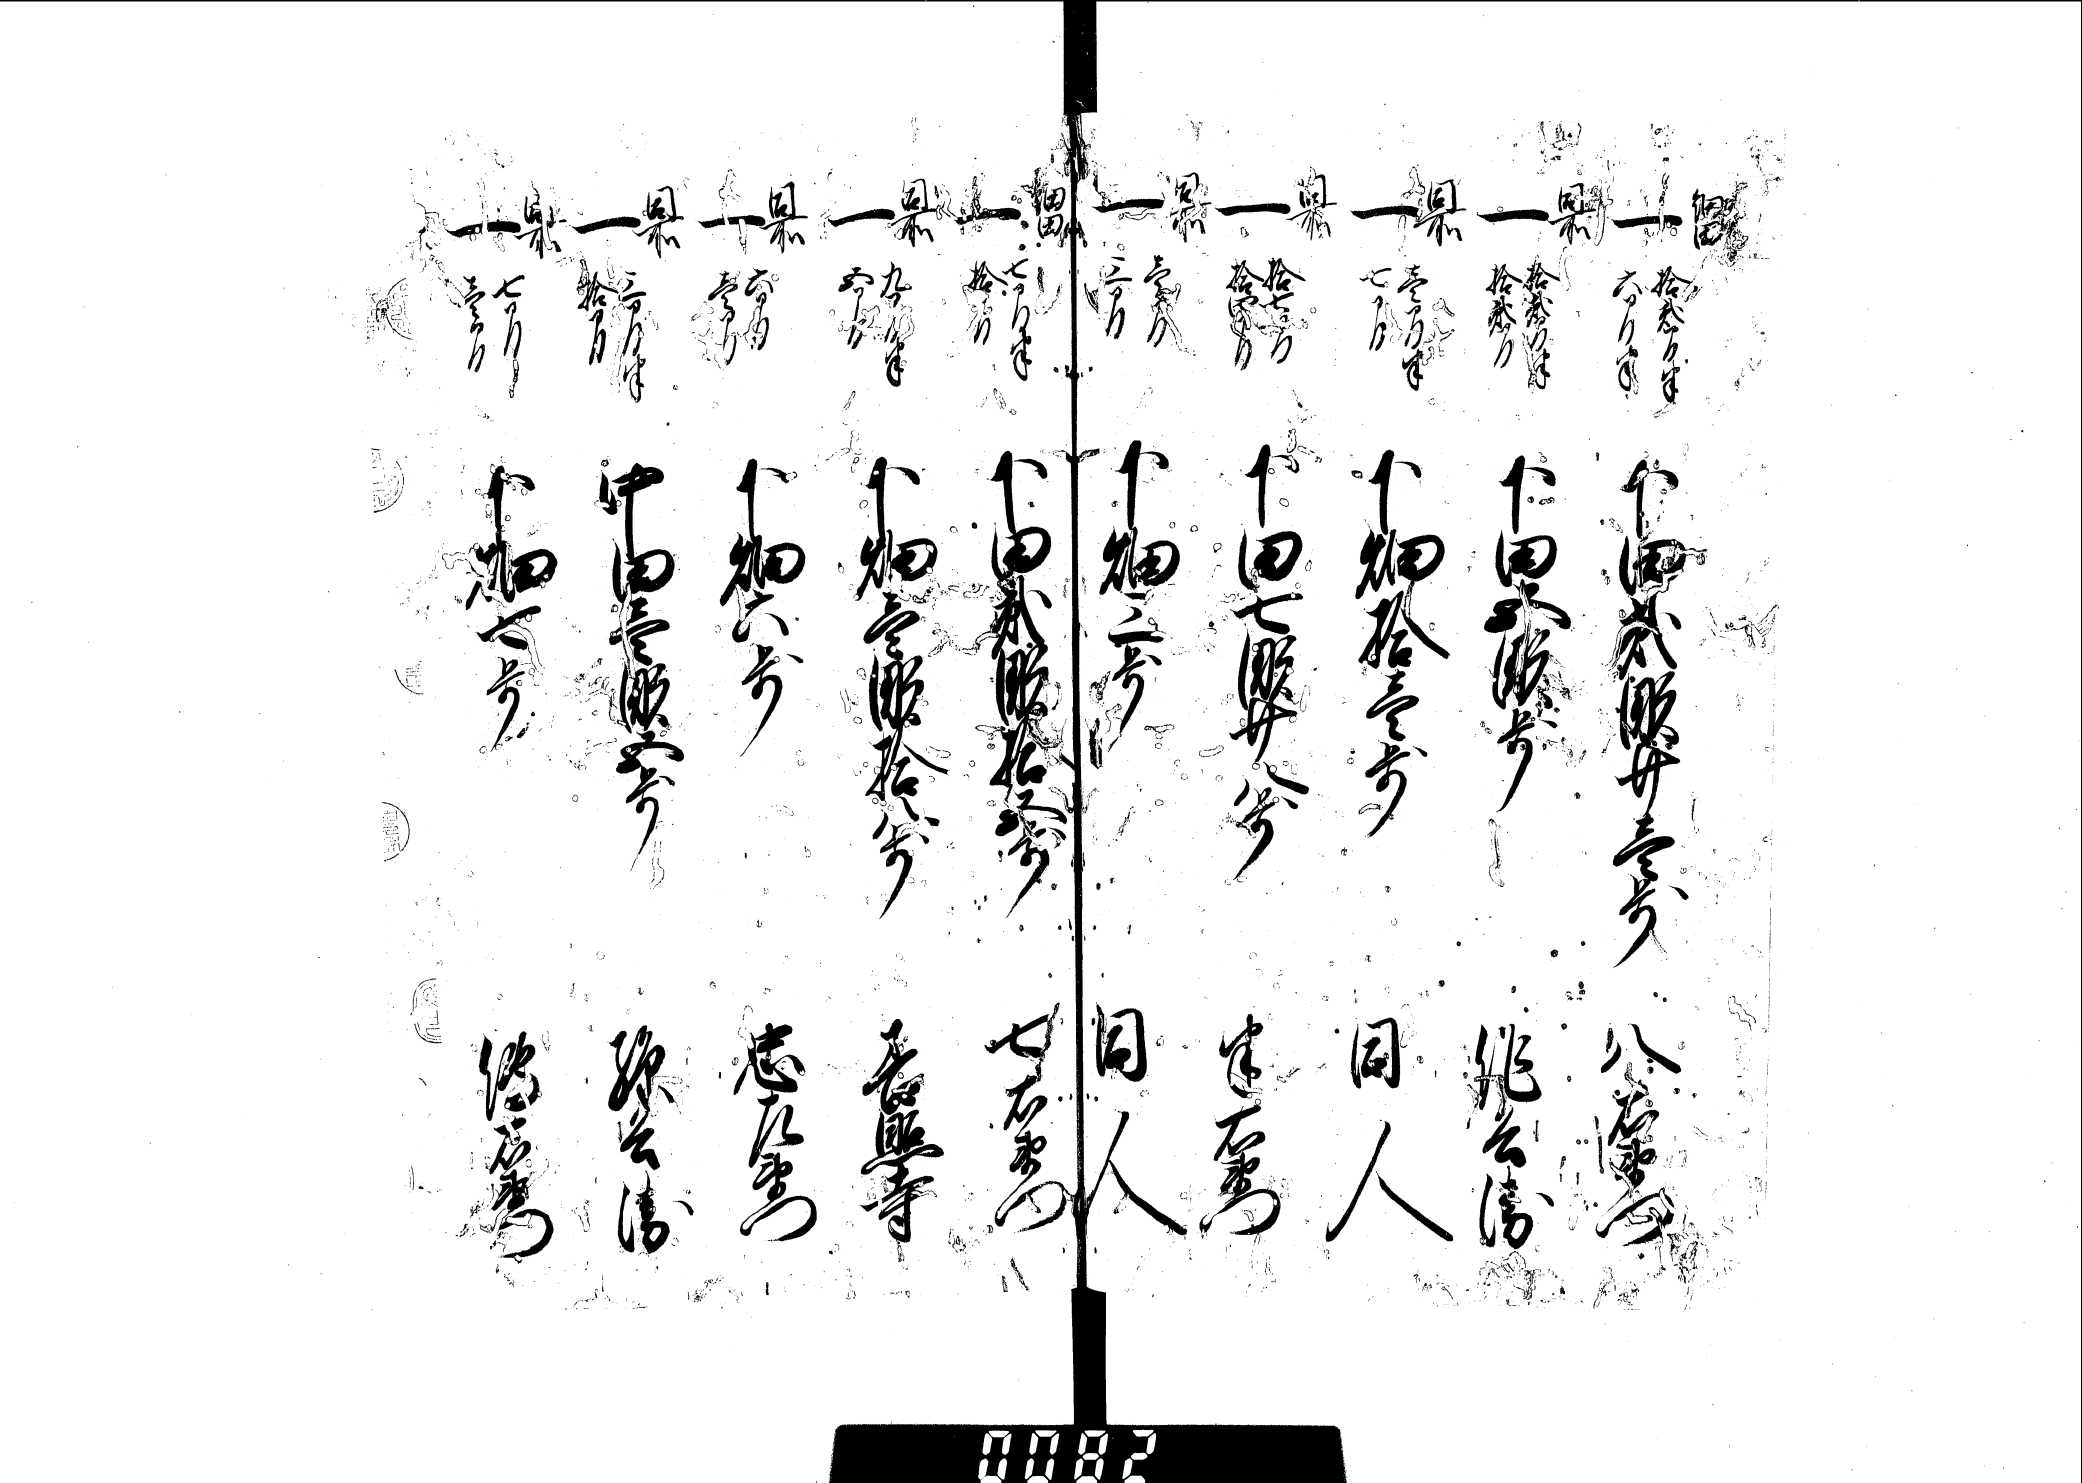 細田
一 拾弐間半 六間半 下田弐畝廿壱歩 八右衛門
同所
一 拾弐間半 拾弐間 下田五畝歩 作兵衛
同所
一 壱間半 七間 下畑拾壱歩 同人
同所
一 拾七間 拾四間 下田七畝廿八歩 半右衛門
同所
一 壱間 三間 下畑三歩 同人
細田
一 七間半 拾間 下田弐畝拾五歩 七右衛門
同所
一 九間半 五間 下畑壱畝拾八歩 長照寺
同所
一 六間 壱間 下畑六歩 忠左衛門
同所
一 三間半 拾間 中田壱畝五歩 孫兵衛
同所
一 七間 壱間 下畑七歩 右衛門
0082